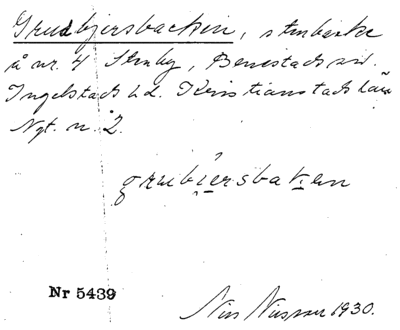 Grudbjersbacken, stenbacke
å nr. 4 Stenby, Benestads sn.
Ingelstads hd. Kristianstads län
Nyt. n. 2.
grubiersbaken
Nr 5439
Nils 1930.